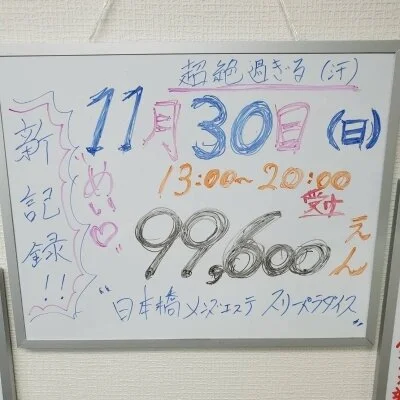 超絶過ぎる(汗)
新記録!!
11月30日(日)
"めい♡"
13:00~20:00
受付
99,600えん
"日本橋メンズエステ スリーパラダイス"